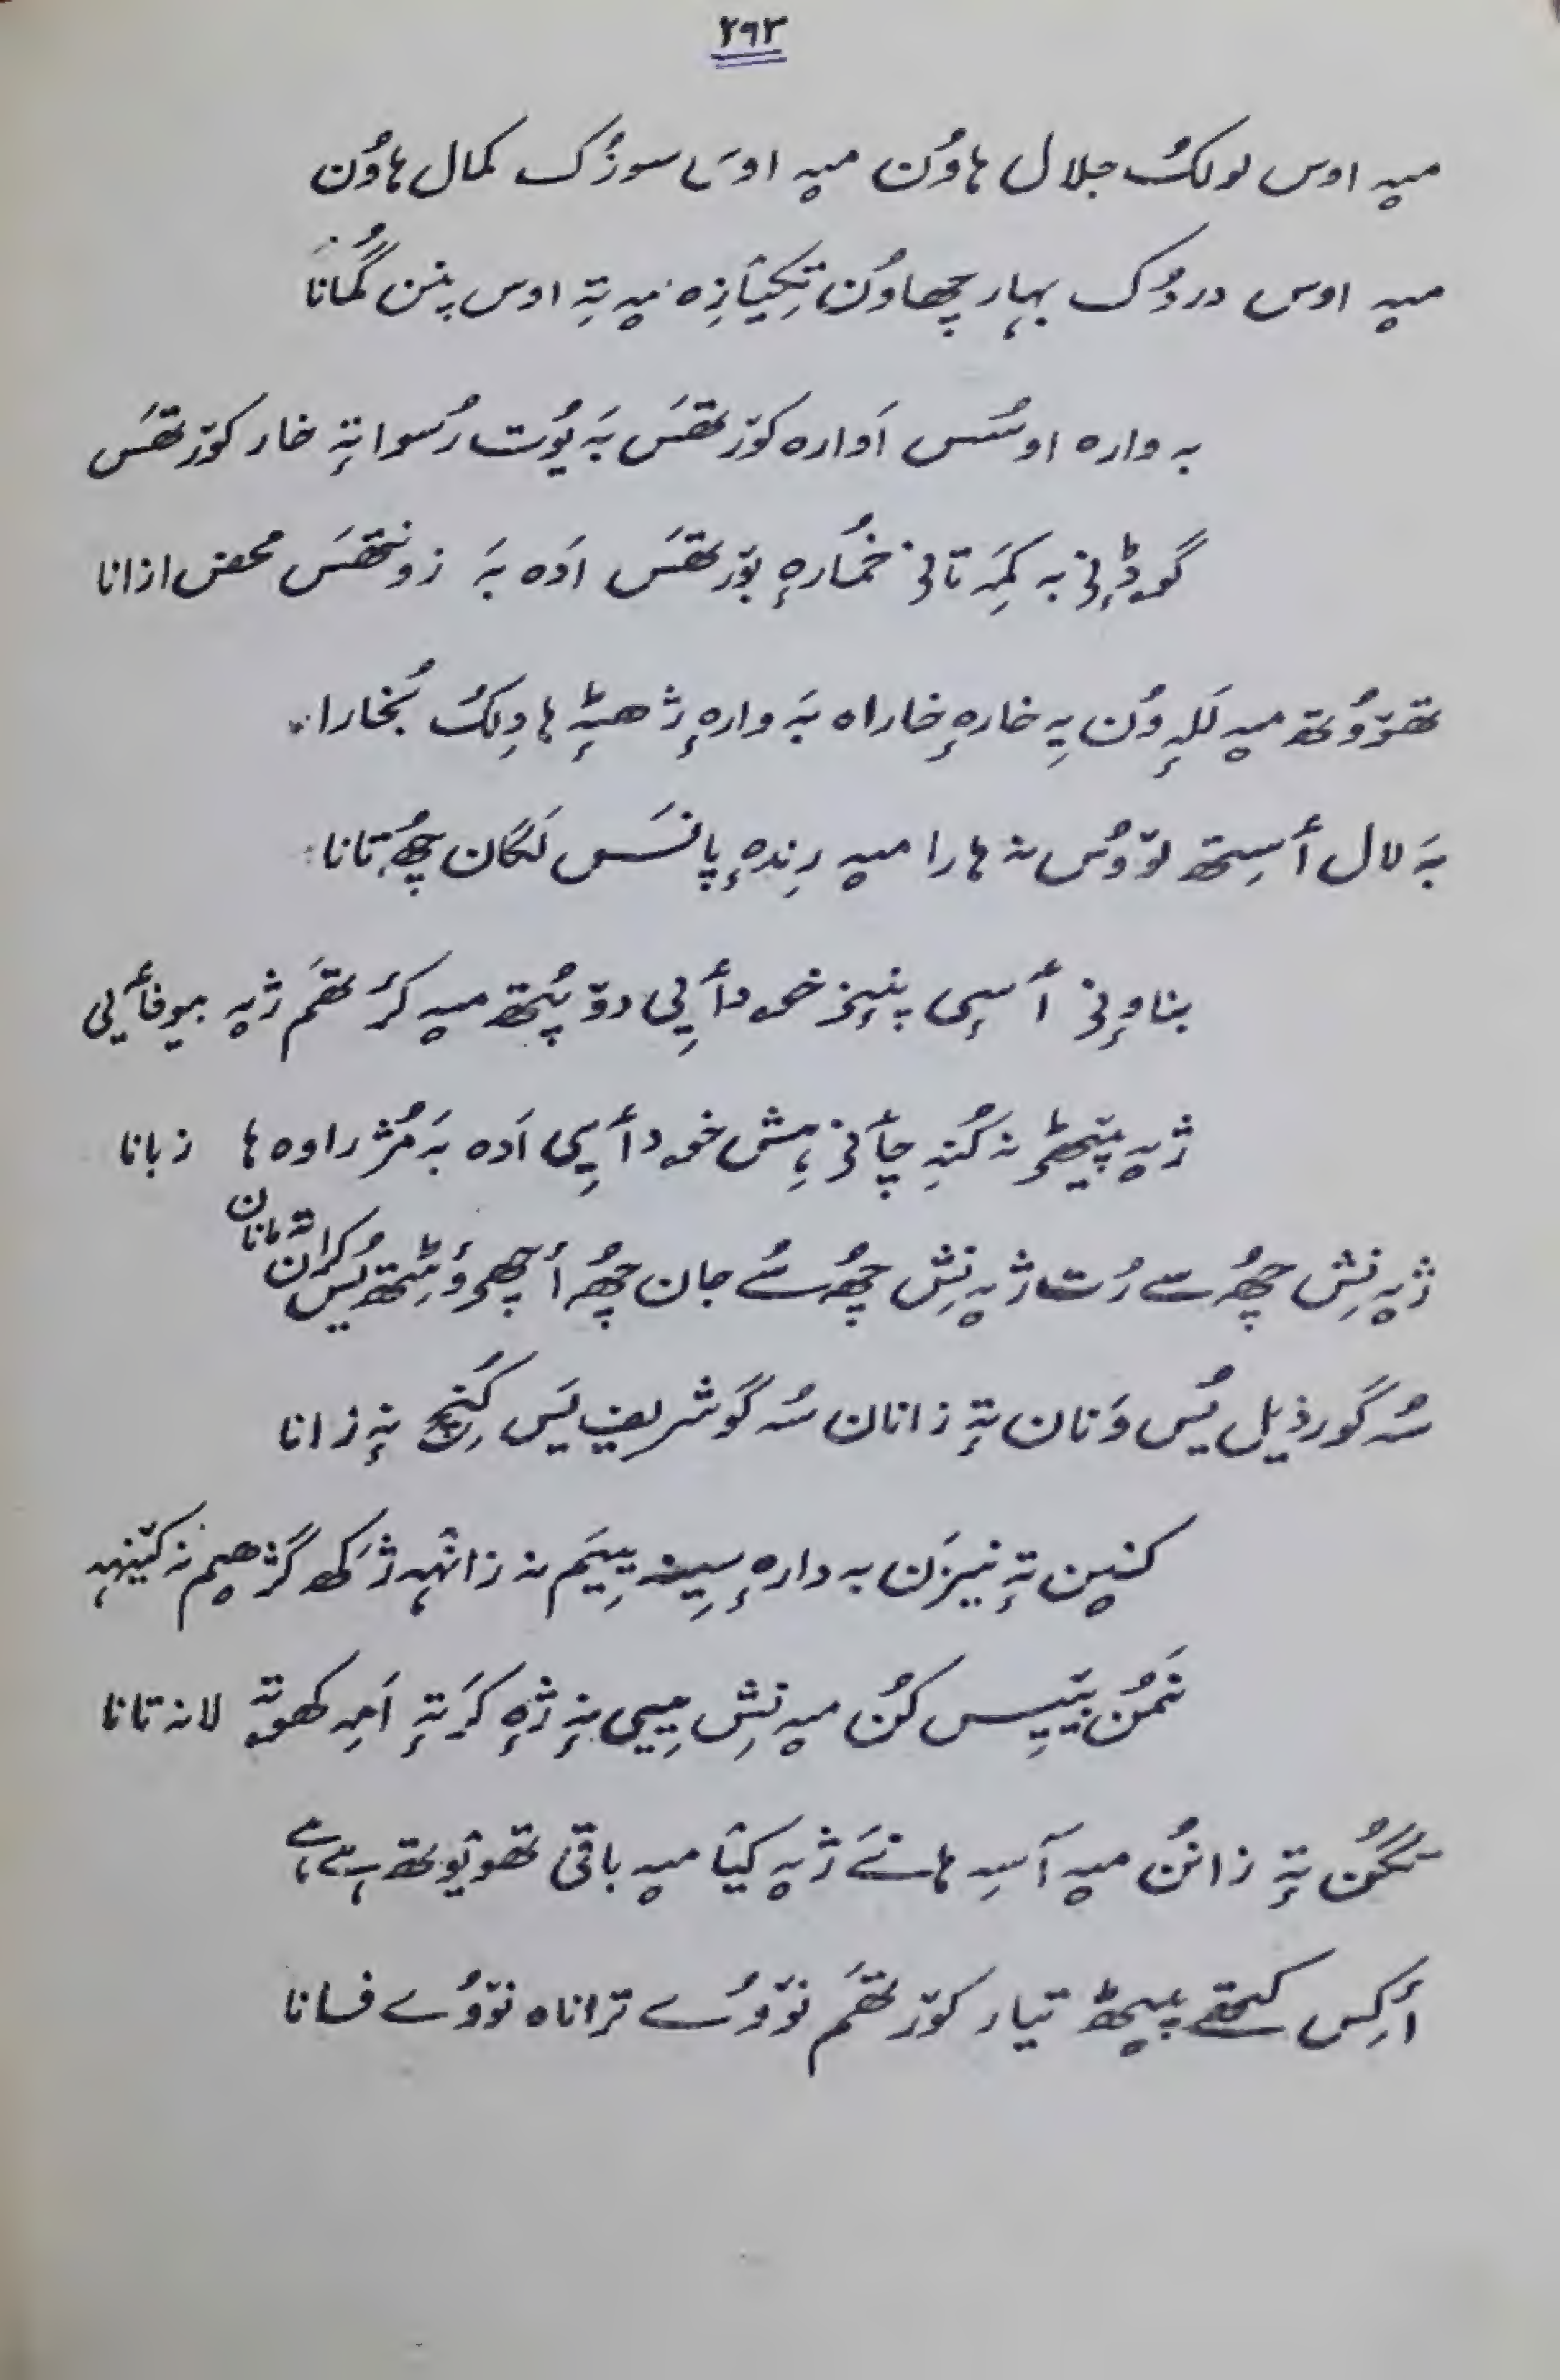 ۲۹۳
میہ اوس لولکُ جلال ہاوُن میہ اوسَ سوزُک کمال ہاوُن
میہ اوس دردُک بہار چھاوُن تِکیٔازِہ میہ تہِ اوس پنن گُمانا
بہ وارہ اوسُس اَوارہ کوٚرتھَس بہَ یوُت رُسوا تہٕ خار کوٚرتھَس
گوڈٕنی بہ کمَہِ تانی خمُارہٕ بوٚرتھَس اَدہ بہَ زونتھَس محض ازانا
تھوٚوُتھ میہ للہٕ وُن یہِ خارہٕ خاراہ بہَ وارہٕ ژھٹہٕ ہاوِکُ بُخارا
بہَ لال أسِتھ لوٚوُس نہ ہارا میہ رِندہٕ پانسَس لَگان چھُ تانا
بناوٕنی أسٕی پنٕنی خودأیی دوٚپُتھ میہ کرٔتھَم ژیہ بیوفأیی
ژیہ پیٚٹھی نہ کُنہِ چأنی ہِش خودأیی اَدہ بہَ مُژراوہ ہا زبانا
ژیہ نِش چھُ سے رُت ژیہ نِش چھُ سُے جان چھُ أچھی ؤٹِتھ یُس کران تہ مانان
سُہ گَو رذیل یُس وَنان تہٕ زانان سُہ گَو شریف یَس کِنٛہِ نہٕ زانا
کنہِن تہٕ نیزَن بہ دارہٕ سِینہ یِیَم نہ زانٛہہ ژکھ گژھیم نہ کیٚنہہ
نمَن بیٚیِس کُن میہ نِش مِیی نہٕ ژہٕ کَرتہٕ اَمہِ کھوتہٕ لانہ تانا
تہٕ زانُن میہ آسہِ ہانَے ژیہ کیٔا میہ باقی تھوٚیوتھ ہے ہے
أکِس پیٹھ تیار کوٚرتھَم نوٚوُے تراناہ نوٚوُے فسانا